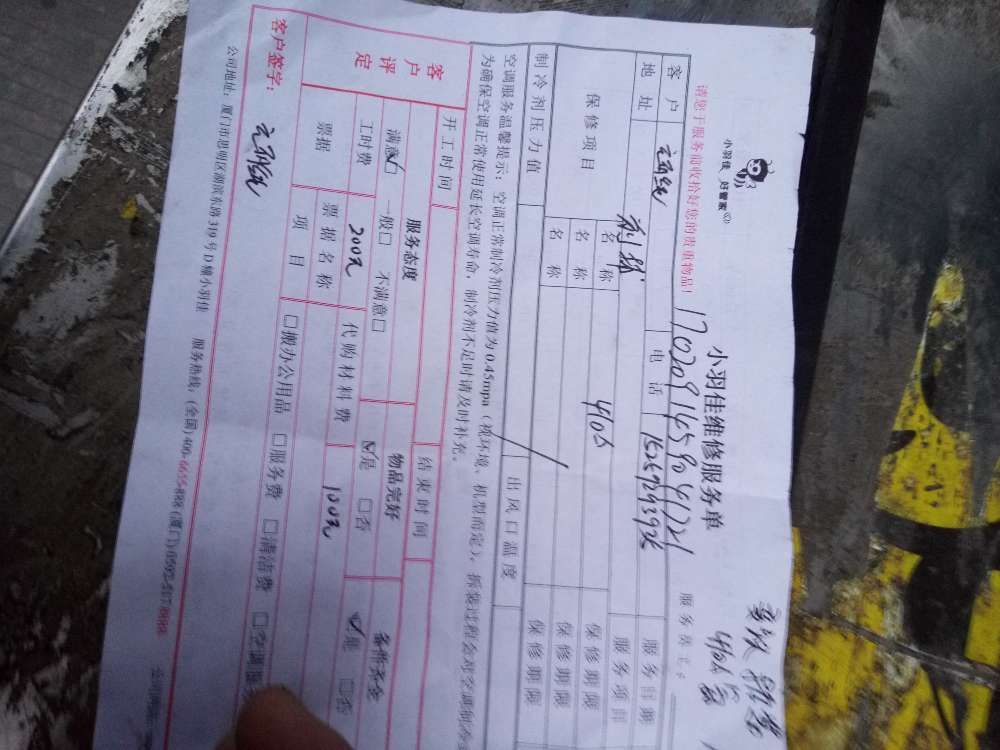 小羽佳 好管家
小羽佳维修服务单
请您于服务前收拾好您的贵重物品!
服务员工
客户
电话
服务日期
地址
服务项目
保修项目
名称
410A
保修期限
名称
保修期限
名称
保修期限
制冷剂压力值
出风口温度
空调服务温馨提示:空调正常制冷剂压力值为0.45mpa(视环境、机型而定),拆装过程会对空调制冷
为确保空调正常使用延长空调寿命,制冷剂不足时请及时补充。
开工时间
结束时间
客户评定
服务态度
物品完好
备件齐全
满意 一般 不满意
是 否
是 否
工时费
200元
代购材料费
100元
票据
票据名称
项目
搬办公用品 服务费 清洁费 空调服
客户签字:
公司地址:厦门市思明区湖滨东路319号D幢小羽佳 服务热线:(全国)400-6655-888 (厦门)